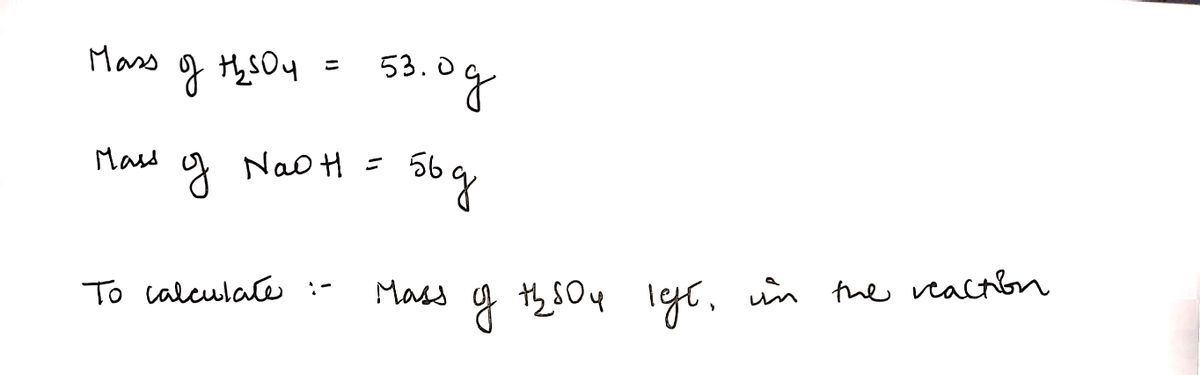 Mass of H₂SO₄ = 53.0 g
Mass of NaOH = 56 g
To calculate :- Mass of H₂SO₄ left, in the reaction